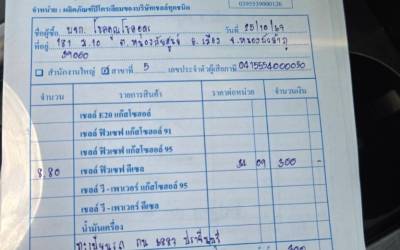 0395539000126
จำหน่าย : ผลิตภัณฑ์ปิโตรเลียมของบริษัทเชลล์ทุกชนิด
ชื่อผู้ซื้อ บจก. โชคคูณโชคอคร วันที่ 25/10/67
ที่อยู่ 181 ม.10 ต.หนองภัยศูนย์ อ.เมือง จ.หนองบัวลำภู
39000
สำนักงานใหญ่ สาขาที่ 5 เลขประจำตัวผู้เสียภาษี
จำนวน รายการสินค้า ราคาต่อหน่วย จำนวนเงิน
เชลล์ E20 แก๊สโซฮอล์
เชลล์ ฟิวเซฟ แก๊สโซฮอล์ 91
เชลล์ ฟิวเซฟ แก๊สโซฮอล์ 95
8.80 เชลล์ ฟิวเซฟ ดีเซล 34 09 300 -
เชลล์ วี - เพาเวอร์ แก๊สโซฮอล์ 95
เชลล์ วี - เพาเวอร์ ดีเซล
น้ำมันเครื่อง
ทะเบียนรถ กน 8887 ปราจีนบุรี